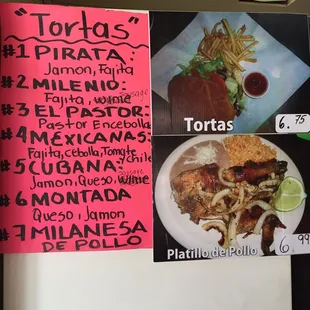 "Tortas"
#1 PIRATA:
Jamon, Fajita
#2 MILENIO:
Fajita,
#3 EL PASTOR:
Pastor Encebolla
#4 MEXICANAS:
Fajita, Cebolla, Tomate y Chile
#5 CUBANA:
Jamon, Queso,
#6 MONTADA
Queso, Jamon
#7 MILANESA
DE POLLO
Tortas
6.75
Platillo de Pollo
6.99